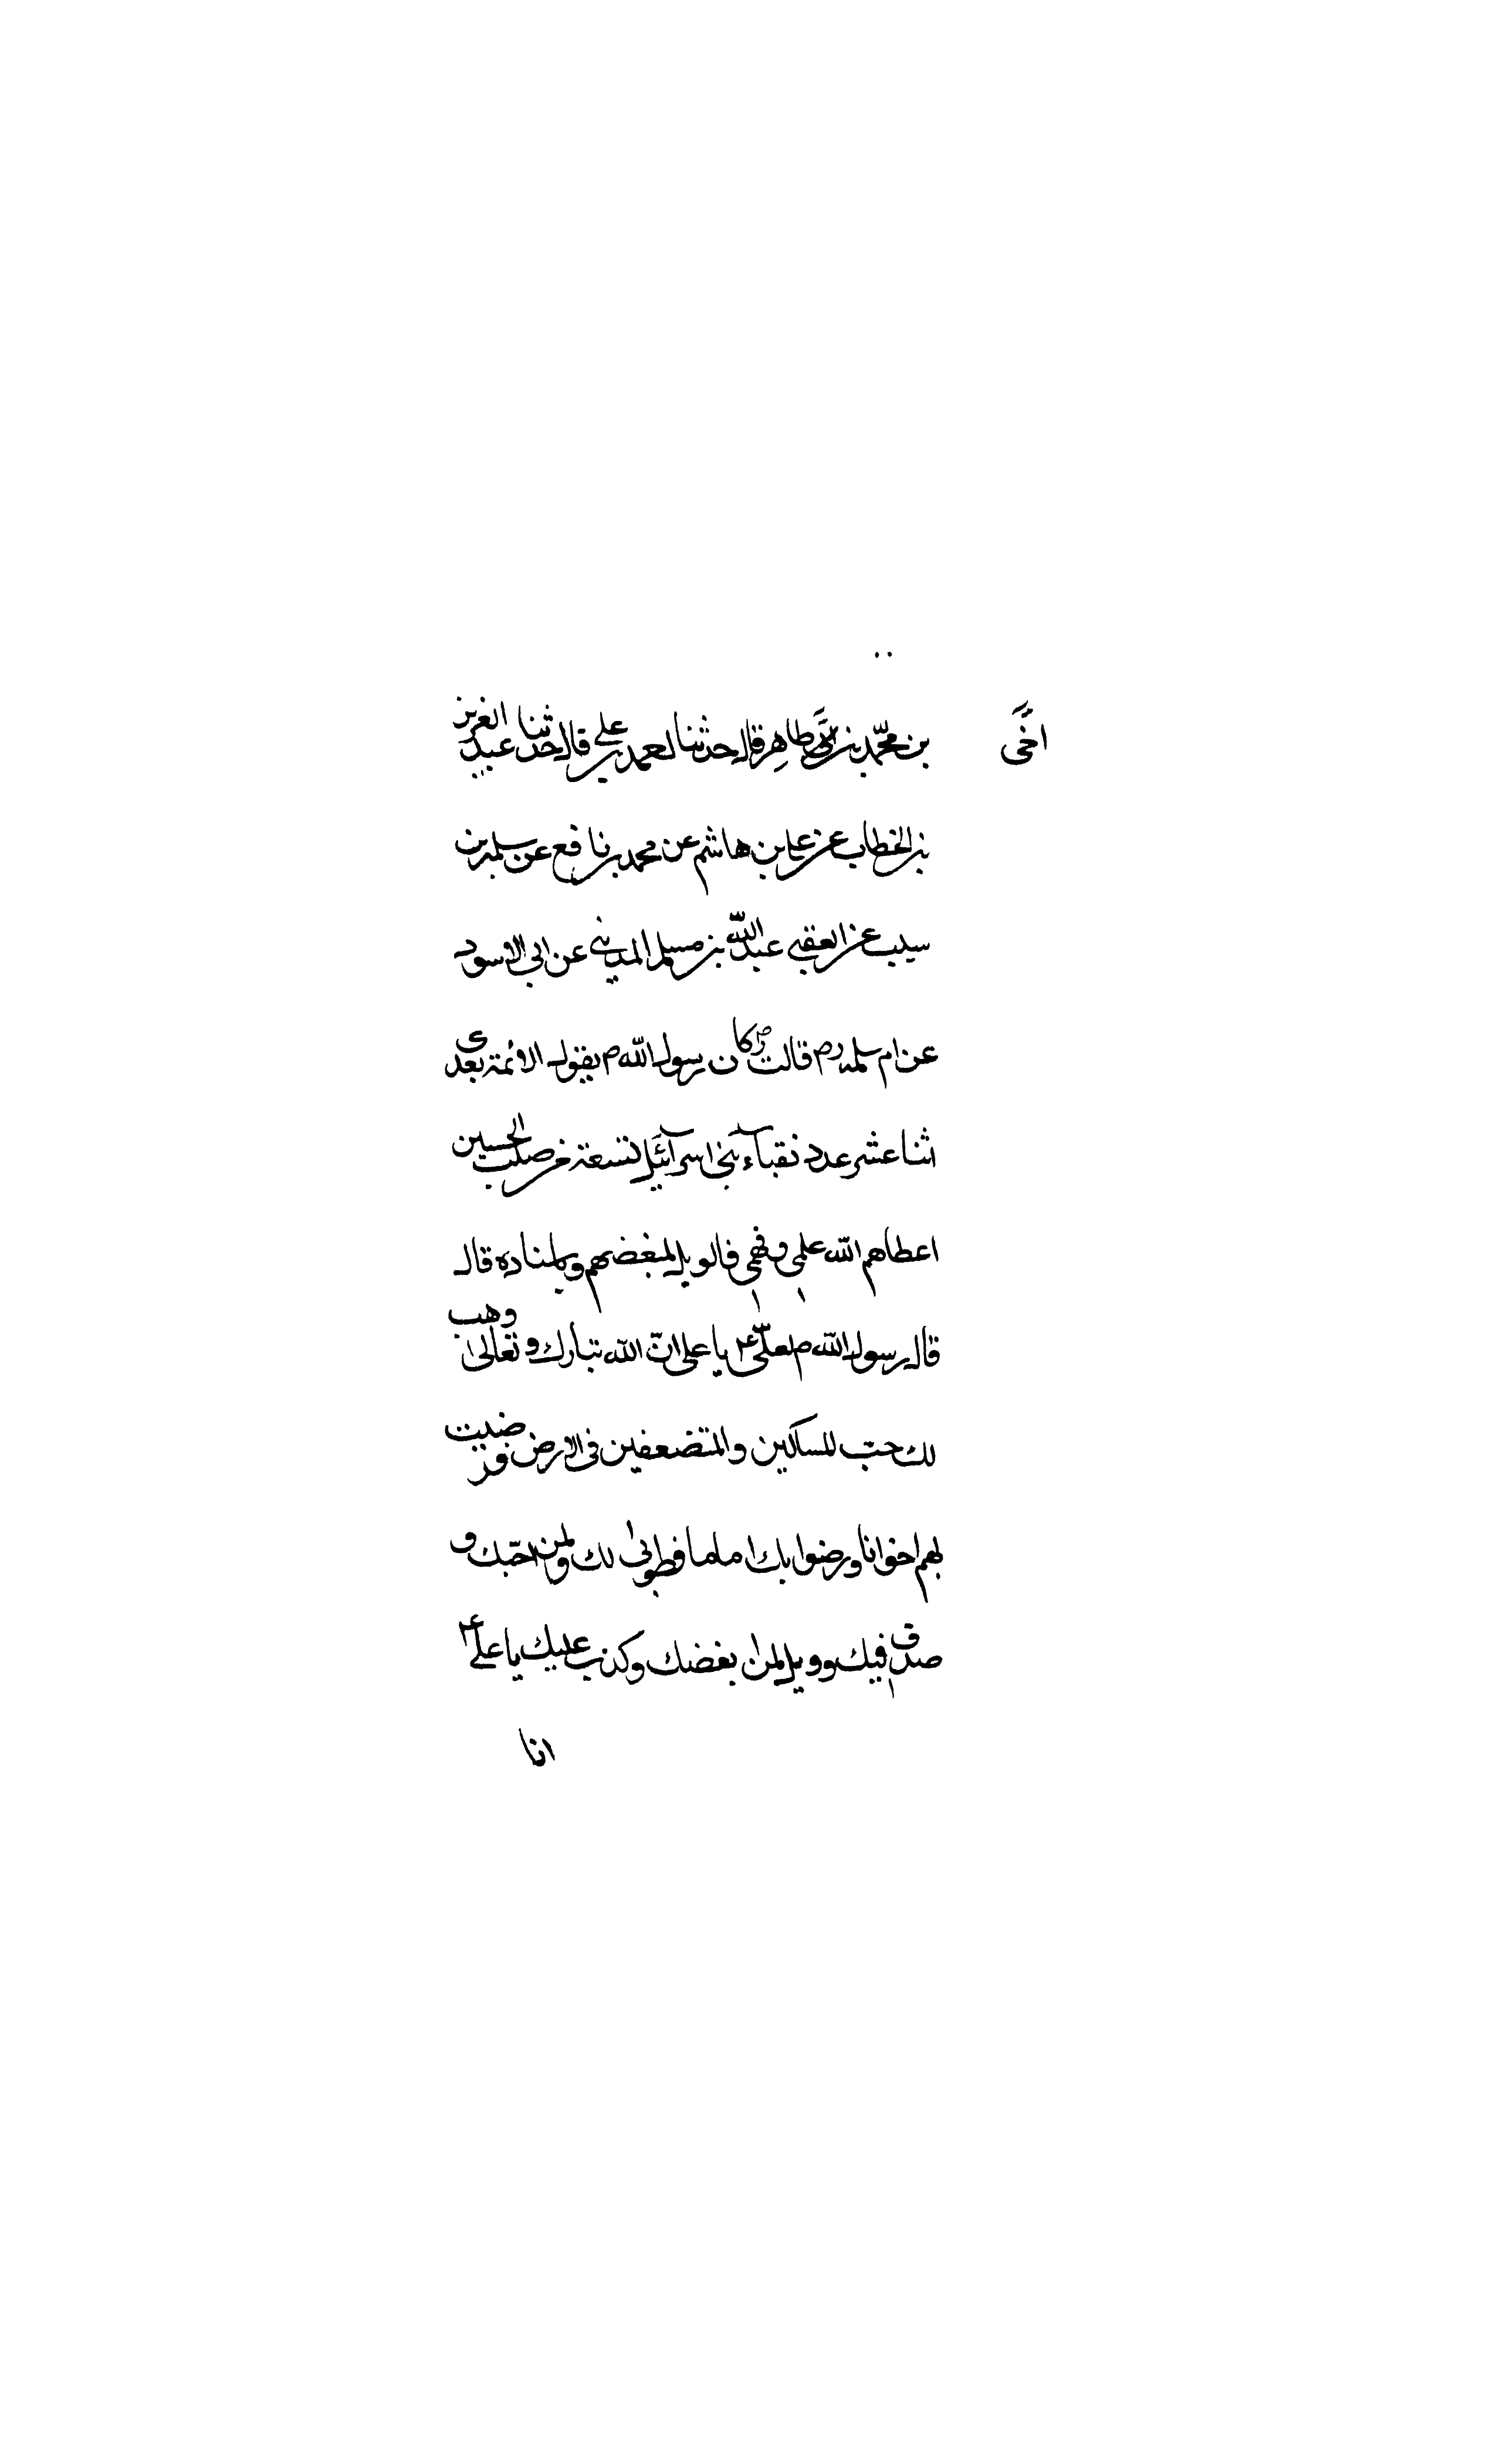 اخی
بن محمّد بن ابی طاهر قال حدثنا احمد بن علی قال حدثنا عبد العزیز
بن الخطاب عن علی بن هاشم عن محمد بن نافع عن سلمة بن
سبب عن القعنبی عبد اللّه بن مسلم المدینی عن ابی الاسود
عن ام سلمه رض قالت کان رسول اللّه ص یقول الائمة بعدی
اثنا عشر عدد نقبآء بنی اسرآئیل تسعة من صلب الحسین
اعطاهم اللّه علمی وفهمی فالویل لمبغضهم وباسناده قال
قال رسول اللّه ص لعلیّ ع یا علی انّ اللّه تبارک وتعالی وهب
لك حبّ المساکین والمتضعفین فی الارض ورضیت
بهم اخوانا ورضوا بك اماما فطوبی لك ولمن احبّك و
صدق فیك وویل لمن ابغضك وکذب علیك یا علی ع
انا